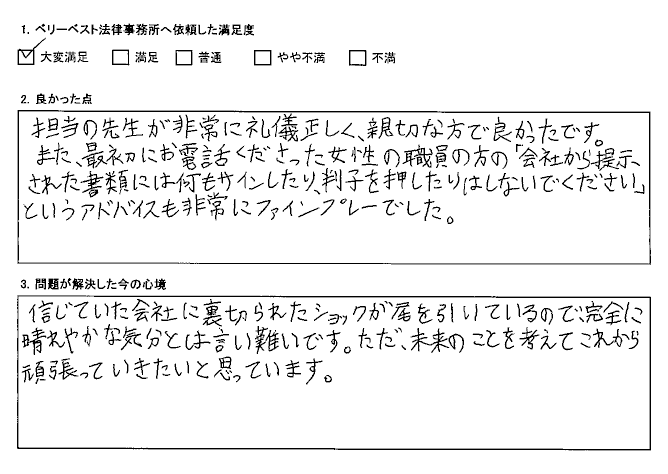 1. ベリーベスト法律事務所へ依頼した満足度
大変満足 満足 普通 やや不満 不満
2. 良かった点
担当の先生が非常に礼儀正しく、親切な方で良かったです。
また、最初にお電話くださった女性の職員の方の「会社から提示
された書類には何もサインしたり、判子を押したりはしないでください」
というアドバイスも非常にファインプレーでした。
3. 問題が解決した今の心境
信じていた会社に裏切られたショックが尾を引いているので、完全に
晴れやかな気分とは言い難いです。ただ、未来のことを考えてこれから
頑張っていきたいと思っています。